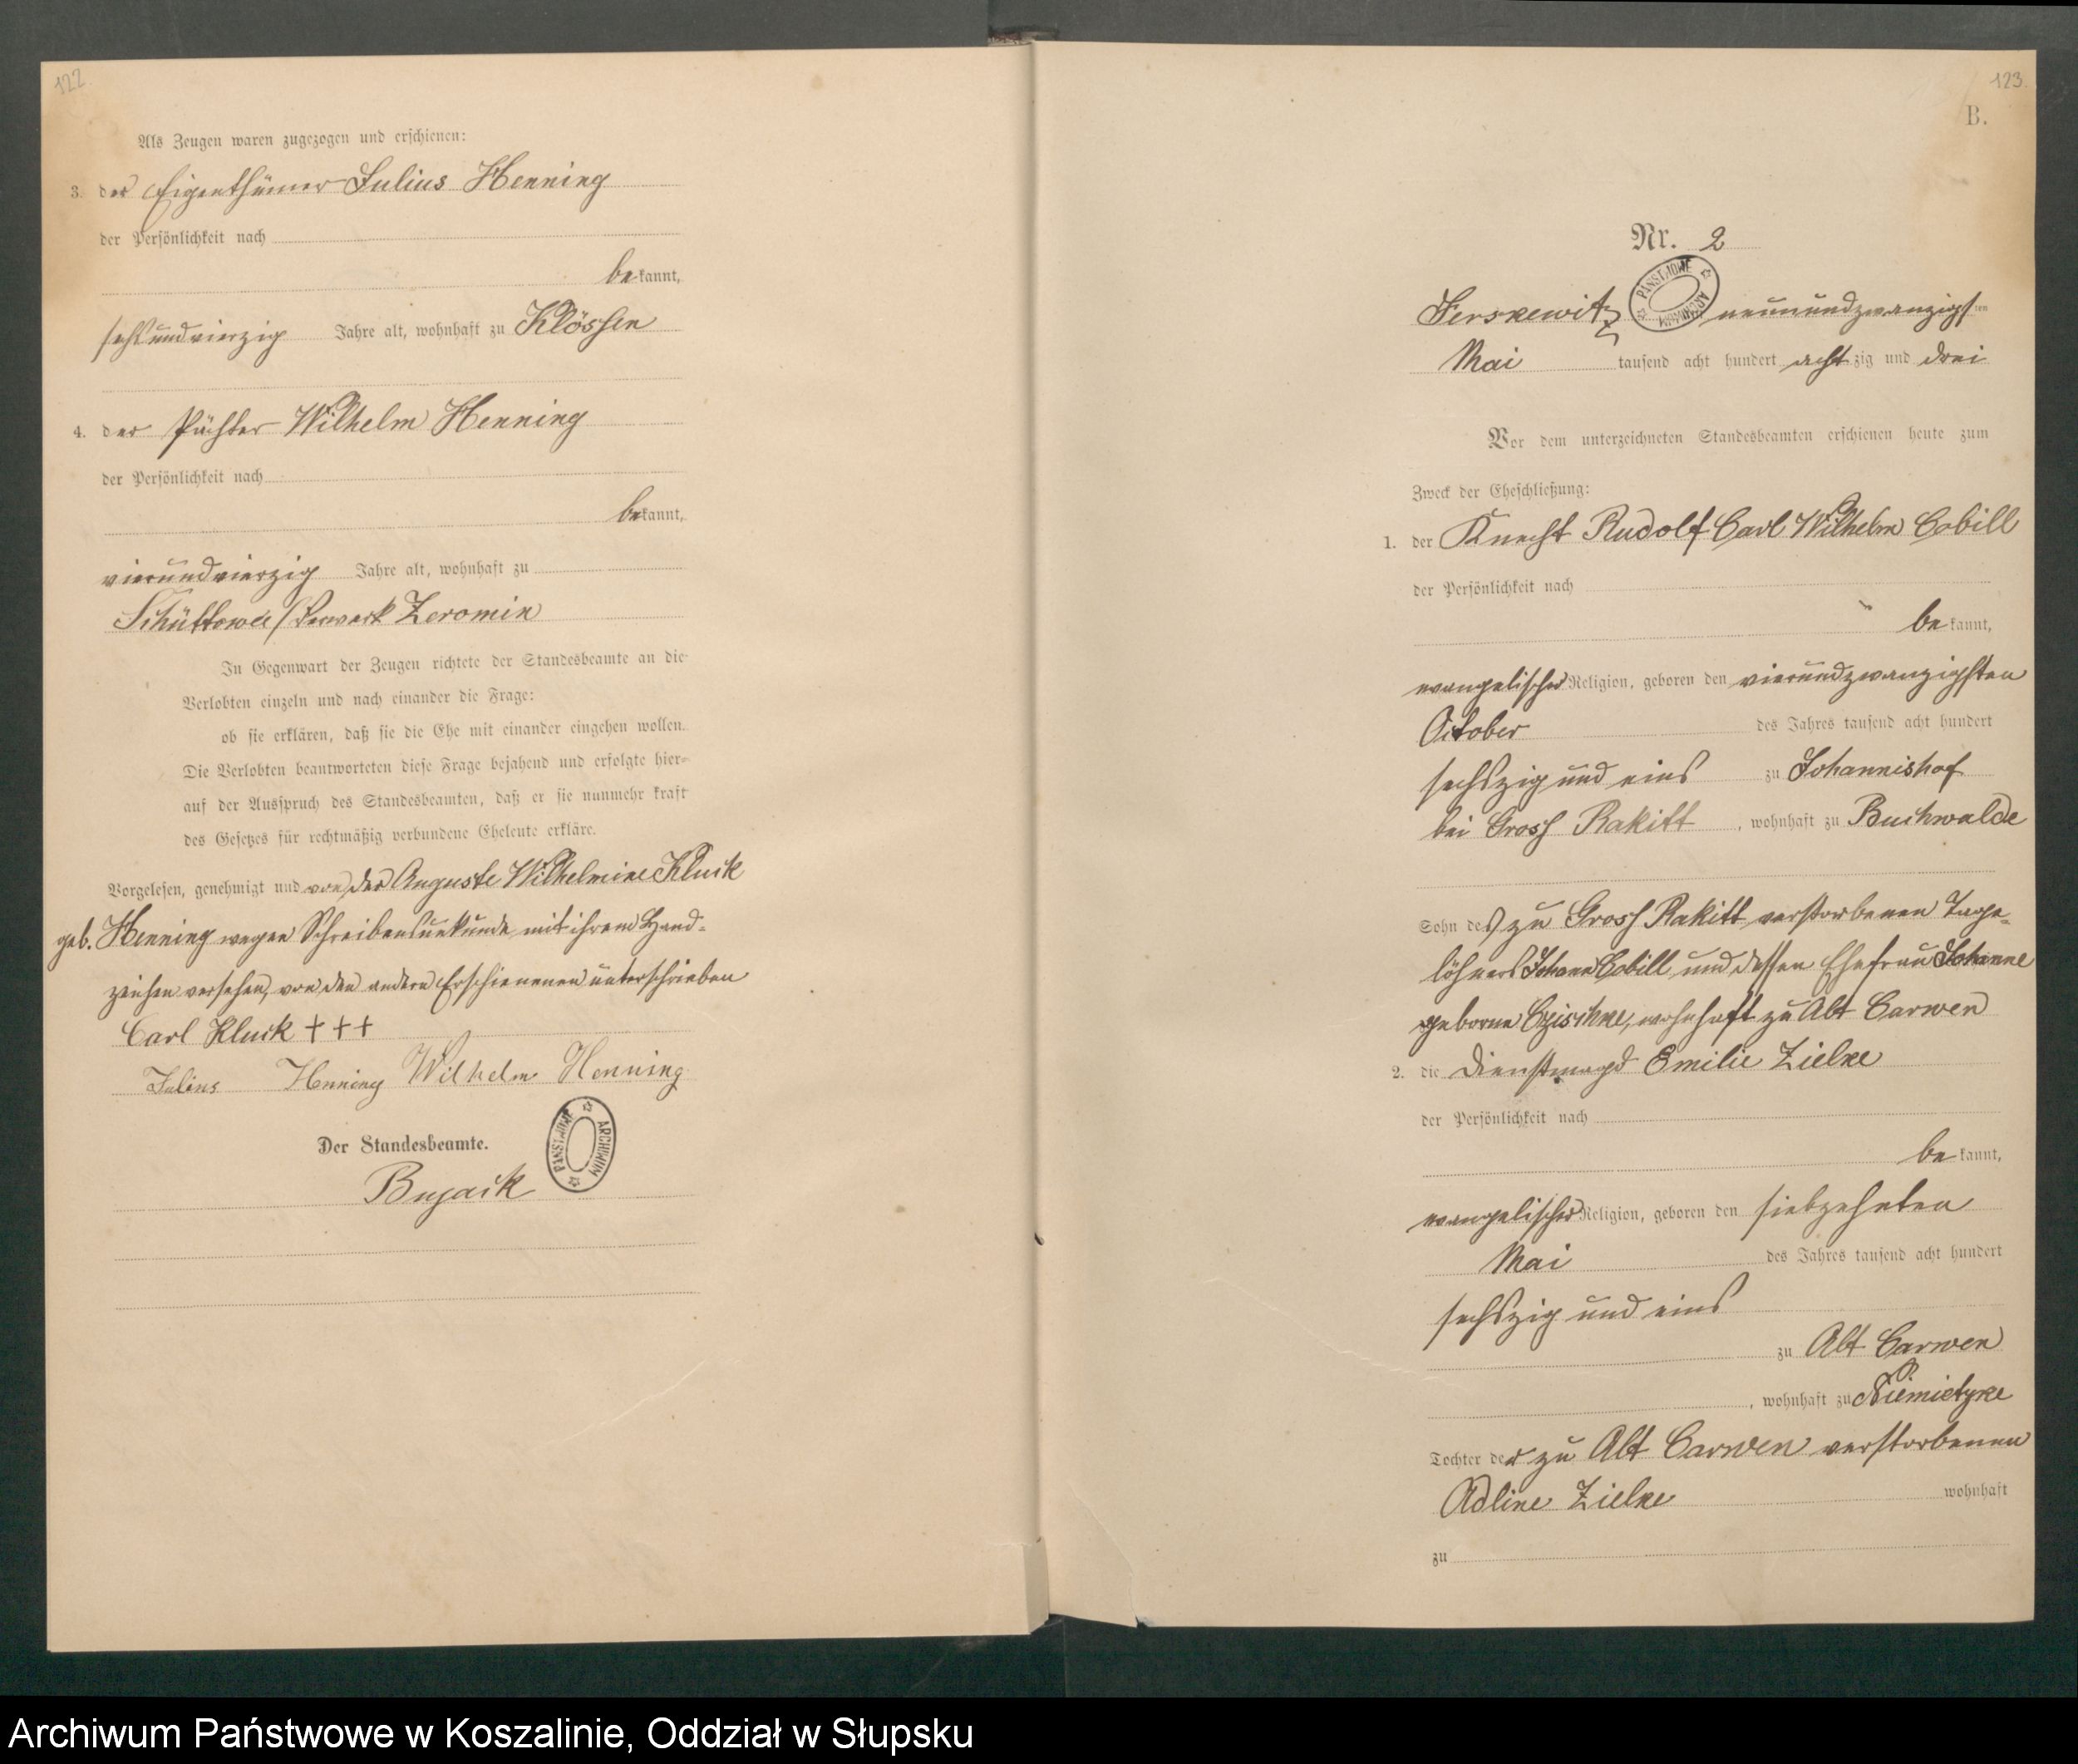 122
Als Zeugen waren zugezogen und erschienen:
3. der Eigenthümer Julius Henning
der Persönlichkeit nach
bekannt,
sechsundvierzig Jahre alt, wohnhaft zu Klössen
4. der Pächter Wilhelm Henning
der Persönlichkeit nach
bekannt,
vierundvierzig Jahre alt, wohnhaft zu
Zeromin
In Gegenwart der Zeugen richtete der Standesbeamte an die
Verlobten einzeln und nach einander die Frage:
ob sie erklären, daß sie die Ehe mit einander eingehen wollen.
Die Verlobten beantworteten diese Frage bejahend und erfolgte hier-
auf der Ausspruch des Standesbeamten, daß er sie nunmehr kraft
des Gesetzes für rechtmäßig verbundene Eheleute erkläre.
Vorgelesen, genehmigt und von der Auguste Wilhelmine Kluck
geb. Henning wegen Schreibensunkunde mit ihrem Hand-
zeichen versehen, von den andern Erschienenen unterschrieben
Carl Kluck +++
Julius Henning Wilhelm Henning
Der Standesbeamte.
PAŃSTWOWE ARCHIWUM
123
B.
Nr. 2
PAŃSTWOWE ARCHIWUM
Jerskewitz neunundzwanzigsten
Mai tausend acht hundert achtzig und drei
Vor dem unterzeichneten Standesbeamten erschienen heute zum
Zweck der Eheschließung:
1. der Knecht Rudolf Carl Wilhelm Cobill
der Persönlichkeit nach
bekannt,
evangelischer Religion, geboren den vierundzwanzigsten
October des Jahres tausend acht hundert
sechszig und eins zu Johannishof
bei Gross Rakitt, wohnhaft zu Buchwalde
Sohn des zu Gross Rakitt verstorbenen Tage-
löhners Johann Cobill und dessen Ehefrau Johanne
geborne wohnhaft zu Alt Carwen
2. die Dienstmagd Emilie Zielke
der Persönlichkeit nach
bekannt,
evangelischer Religion, geboren den siebzehnten
Mai des Jahres tausend acht hundert
sechszig und eins
zu Alt Carwen
, wohnhaft zu Niemietzke
Tochter der zu Alt Carwen verstorbenen
Adline Zielke wohnhaft
zu
Archiwum Państwowe w Koszalinie, Oddział w Słupsku